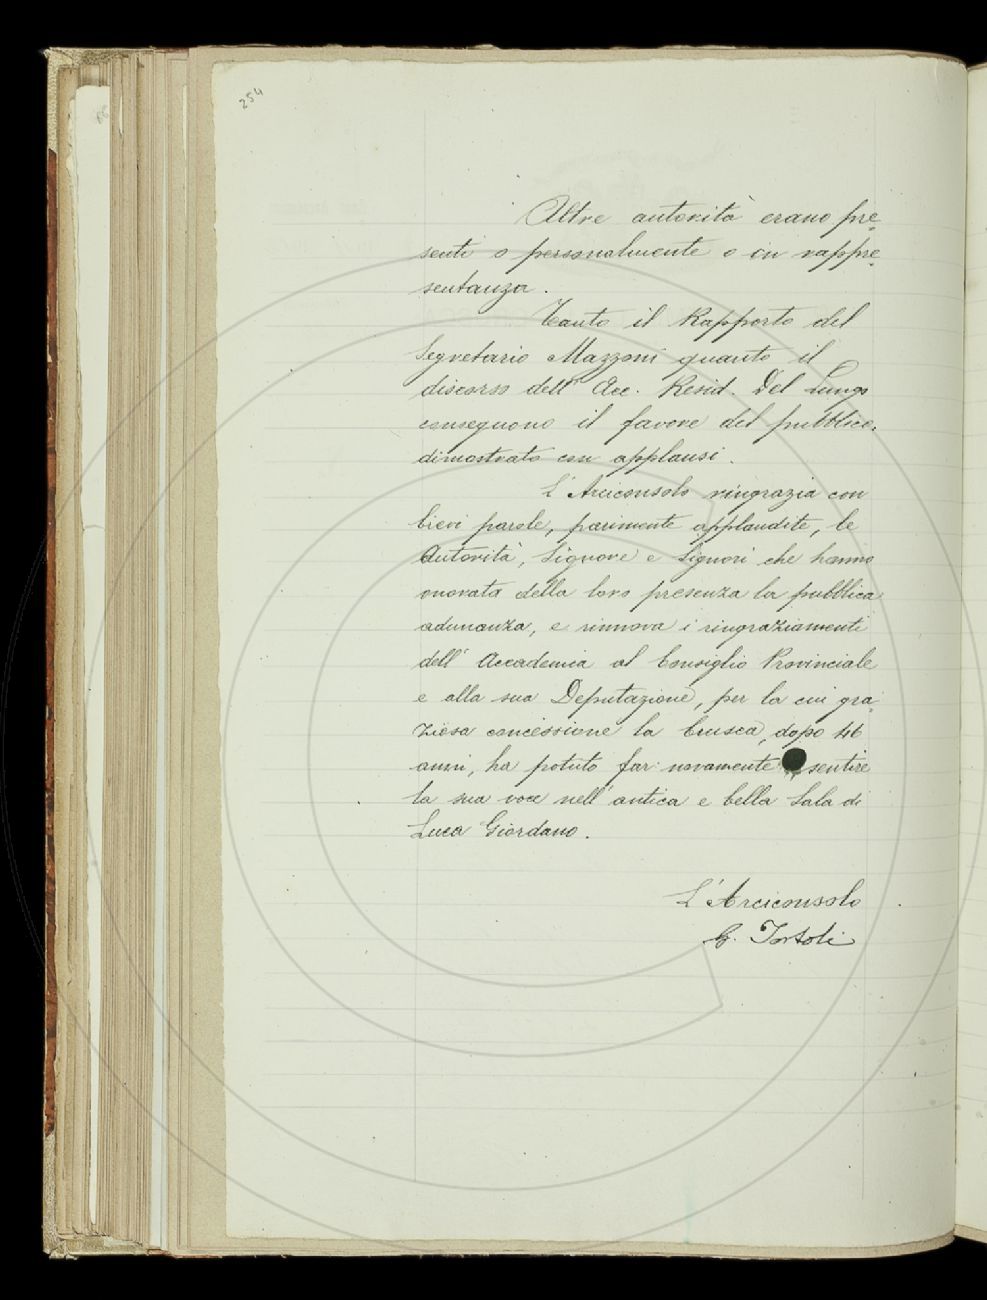 254
Altre autorità erano pre-
senti o personalmente o in rappre-
sentanza.
Tanto il Rapporto del
Segretario Mazzoni quanto il
discorso dell' Acc. Resid. Del Lungo
conseguono il favore del pubblico,
dimostrato con applausi.
L'Arciconsolo ringrazia con
brevi parole, parimente applaudite, le
Autorità, Signore e Signori che hanno
onorata della loro presenza la pubblica
adunanza, e rinnova i ringraziamenti
dell' Accademia al Consiglio Provinciale
e alla sua Deputazione, per la cui gra-
ziosa concessione la Crusca, dopo 46
anni, ha potuto far novamente sentire
la sua voce nell'antica e bella Sala di
Luca Giordano.
L'Arciconsolo
G. Tortoli